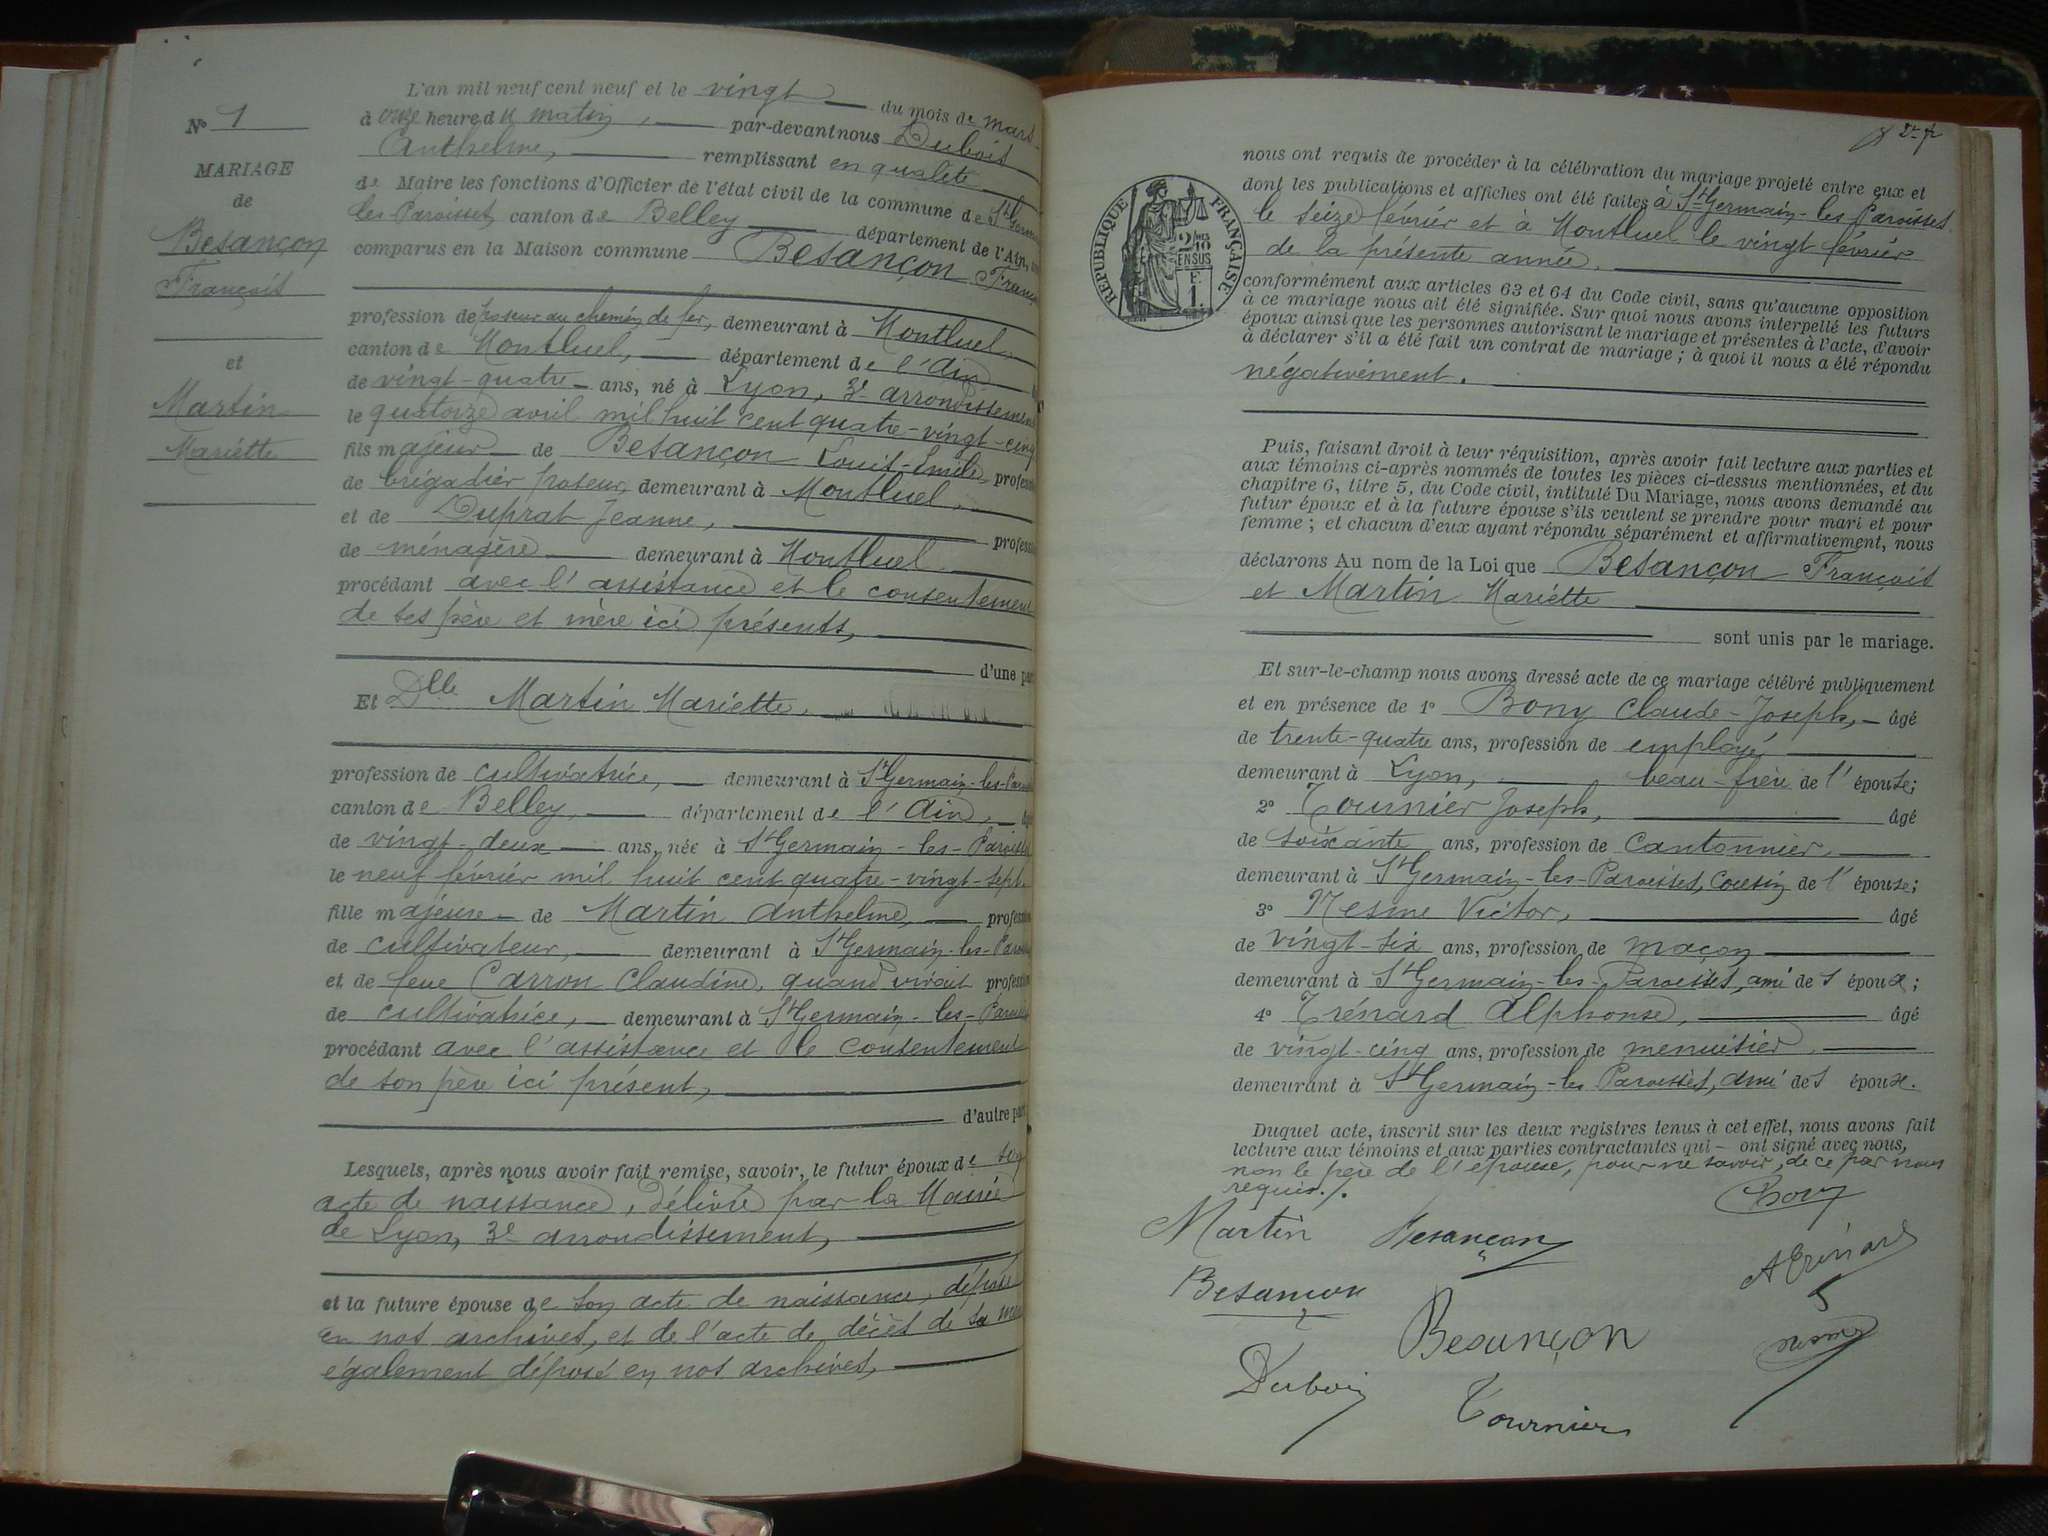 N° 1
MARIAGE
de
Besançon
François
et
Martin
Mariétte
L'an mil neuf cent neuf et le vingt du mois de mars
à onze heure du matin, par-devant nous Dubois
Anthelme, remplissant en qualité
de Maire les fonctions d'Officier de l'état civil de la commune de St Germain
les Paroisses, canton de Belley département de l'Ain,
comparus en la Maison commune Besançon François
profession de poseur au chemin de fer, demeurant à Montluel
canton de Montluel, département de l'Ain
de vingt-quatre ans, né à Lyon, 3e arrondissement
le quatorze avril mil huit cent quatre-vingt-cinq
fils majeur de Besançon Louis-Emile, profession
de brigadier poseur, demeurant à Montluel,
et de Duprat Jeanne, profession
de ménagère demeurant à Montluel
procédant avec l'assistance et le consentement
de ses père et mère ici présents,
d'une part
Et Dlle Martin Mariétte,
profession de cultivatrice, demeurant à St Germain-les-Paroisses
canton de Belley, département de l'Ain,
de vingt-deux ans, née à St Germain-les-Paroisses
le neuf février mil huit cent quatre-vingt-sept,
fille majeure de Martin Anthelme, profession
de cultivateur, demeurant à St Germain-les-Paroisses
et de feue Carron Claudine, quand vivait profession
de cultivatrice, demeurant à St Germain-les-Paroisses
procédant avec l'assistance et le consentement
de son père ici présent,
d'autre part
Lesquels, après nous avoir fait remise, savoir, le futur époux de son
acte de naissance, délivré par la Mairie
de Lyon, 3e arrondissement,
et la future épouse de son acte de naissance, déposé
en nos archives, et de l'acte de décès de sa mère
également déposé en nos archives,
nous ont requis de procéder à la célébration du mariage projeté entre eux et
dont les publications et affiches ont été faites à St Germain-les-Paroisses
le seize février et à Montluel le vingt février
de la présente année.
RÉPUBLIQUE FRANÇAISE
2/10 EN SUS
1 F.
conformément aux articles 63 et 64 du Code civil, sans qu'aucune opposition
à ce mariage nous ait été signifiée. Sur quoi nous avons interpellé les futurs
époux ainsi que les personnes autorisant le mariage et présentes à l'acte, d'avoir
à déclarer s'il a été fait un contrat de mariage ; à quoi il nous a été répondu
négativement.
Puis, faisant droit à leur réquisition, après avoir fait lecture aux parties et
aux témoins ci-après nommés de toutes les pièces ci-dessus mentionnées, et du
chapitre 6, titre 5, du Code civil, intitulé Du Mariage, nous avons demandé au
futur époux et à la future épouse s'ils veulent se prendre pour mari et pour
femme ; et chacun d'eux ayant répondu séparément et affirmativement, nous
déclarons Au nom de la Loi que Besançon François
et Martin Mariétte
sont unis par le mariage.
Et sur-le-champ nous avons dressé acte de ce mariage célébré publiquement
et en présence de 1° Bony Claude-Joseph, âgé
de trente-quatre ans, profession de employé,
demeurant à Lyon, beau-frère de l'épouse;
2° Tournier Joseph, âgé
de soixante ans, profession de cantonnier,
demeurant à St Germain-les-Paroisses, cousin de l'épouse;
3° Nesme Victor, âgé
de vingt-six ans, profession de maçon
demeurant à St Germain-les-Paroisses, ami des époux;
4° Trénard Alphonse, âgé
de vingt-cinq ans, profession de menuisier,
demeurant à St Germain-les-Paroisses, ami des époux.
Duquel acte, inscrit sur les deux registres tenus à cet effet, nous avons fait
lecture aux témoins et aux parties contractantes qui ont signé avec nous,
non le père de l'épouse, pour ne savoir, de ce par nous
requis./.
Bony
Martin Besançon
A Trénard
Besancon
Besançon
Nesme
Dubois
Tournier